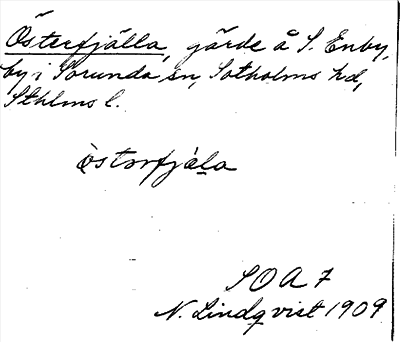 Österfjälla, gärde å S. Enby,
by i Sorunda sn, Sotholms hd,
Sthlms l.
östərfjàla
SOA 7
N. Lindqvist 1909